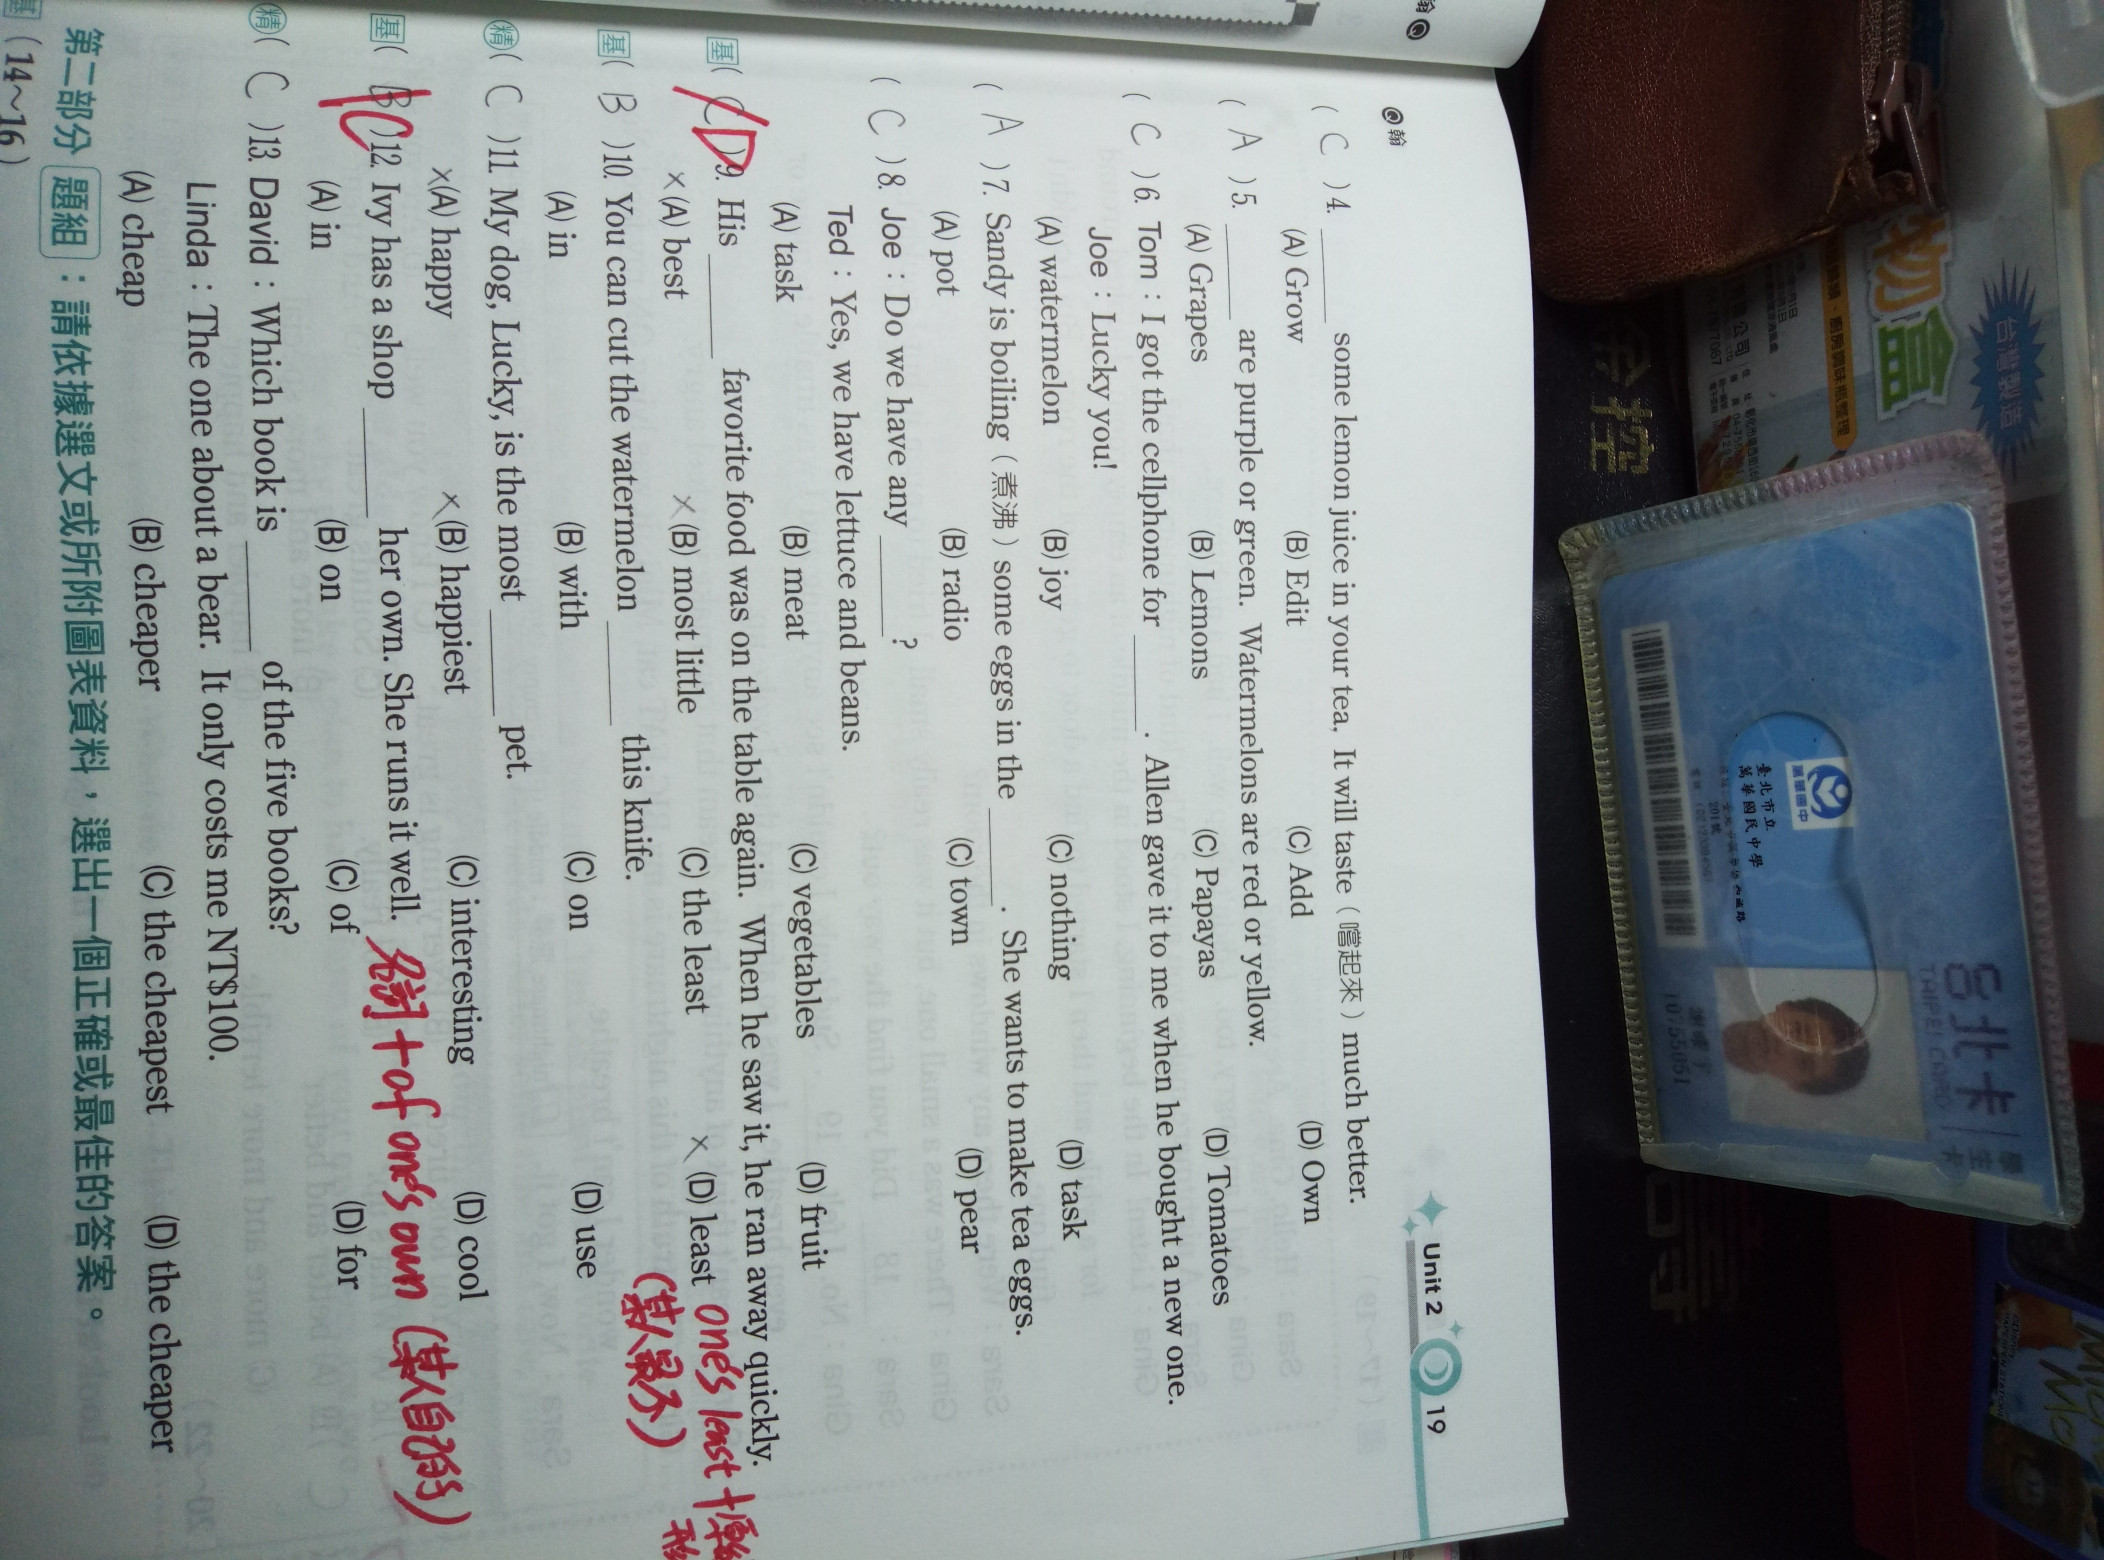 Unit 2 19
翰
( C )4. ______ some lemon juice in your tea, It will taste（嚐起來）much better.
(A) Grow (B) Edit (C) Add (D) Own
( A )5. ______ are purple or green. Watermelons are red or yellow.
(A) Grapes (B) Lemons (C) Papayas (D) Tomatoes
( C )6. Tom：I got the cellphone for ______. Allen gave it to me when he bought a new one.
Joe：Lucky you!
(A) watermelon (B) joy (C) nothing (D) task
( A )7. Sandy is boiling（煮沸）some eggs in the ______. She wants to make tea eggs.
(A) pot (B) radio (C) town (D) pear
( C )8. Joe：Do we have any ______?
Ted：Yes, we have lettuce and beans.
(A) task (B) meat (C) vegetables (D) fruit
基( C D )9. His ______ favorite food was on the table again. When he saw it, he ran away quickly.
×(A) best ×(B) most little (C) the least ×(D) least one's least +
(某人最不)
基( B )10. You can cut the watermelon ______ this knife.
(A) in (B) with (C) on (D) use
精( C )11. My dog, Lucky, is the most ______ pet.
×(A) happy ×(B) happiest (C) interesting (D) cool
基( B C )12. Ivy has a shop ______ her own. She runs it well. 名詞+of one's own (某人自己的)
(A) in (B) on (C) of (D) for
精( C )13. David：Which book is ______ of the five books?
Linda：The one about a bear. It only costs me NT$100.
(A) cheap (B) cheaper (C) the cheapest (D) the cheaper
第二部分 題組：請依據選文或所附圖表資料，選出一個正確或最佳的答案。
基 (14~16)
物盒
台灣製造
台北卡
TAIPEI CARD
學生卡
萬華國中
臺北市立
萬華國民中學